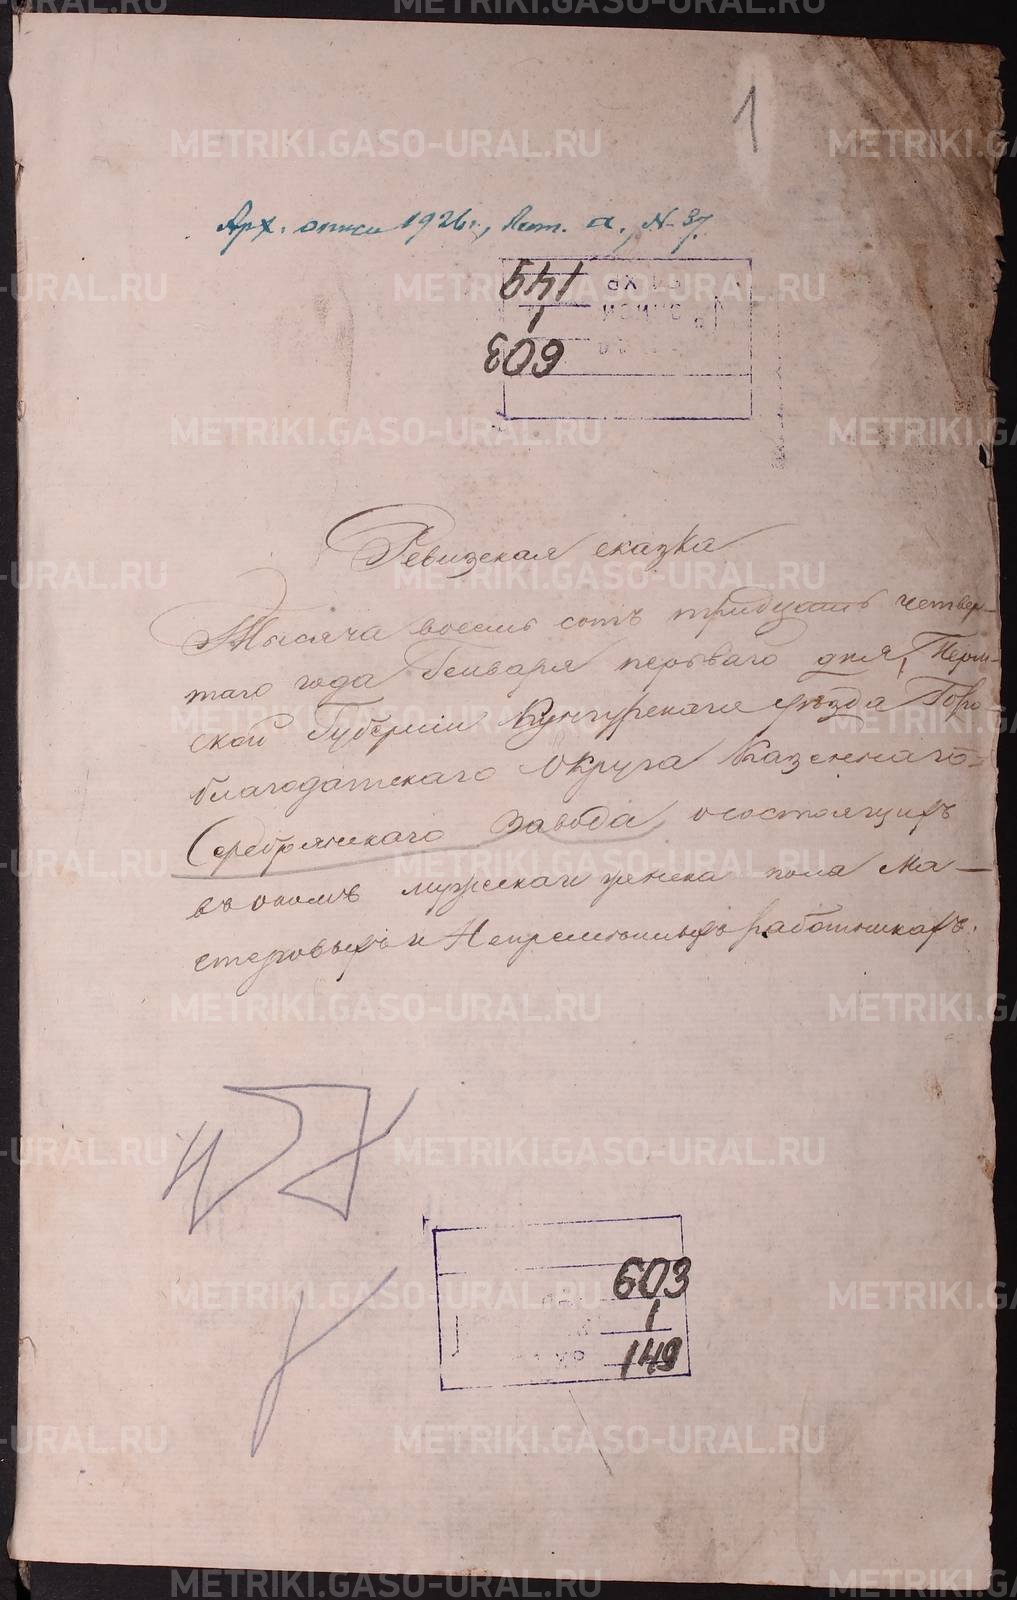 1
Арх. описи 1926 г., Лит. а., № 37.
149
1
603
Ревизская сказка
Тысяча восемь сотъ тридцать четвер-
таго года Генваря перьваго дня, Перм-
ской Губерніи Кунгурскаго уѣзда Горо-
благодатскаго Округа Казеннаго
Серебрянскаго Завода, осостоящихъ
въ ономъ мужеска и женска пола Ма-
стеровыхъ и Непремѣнныхъ работникахъ.
603
1
149
METRIKI.GASO-URAL.RU